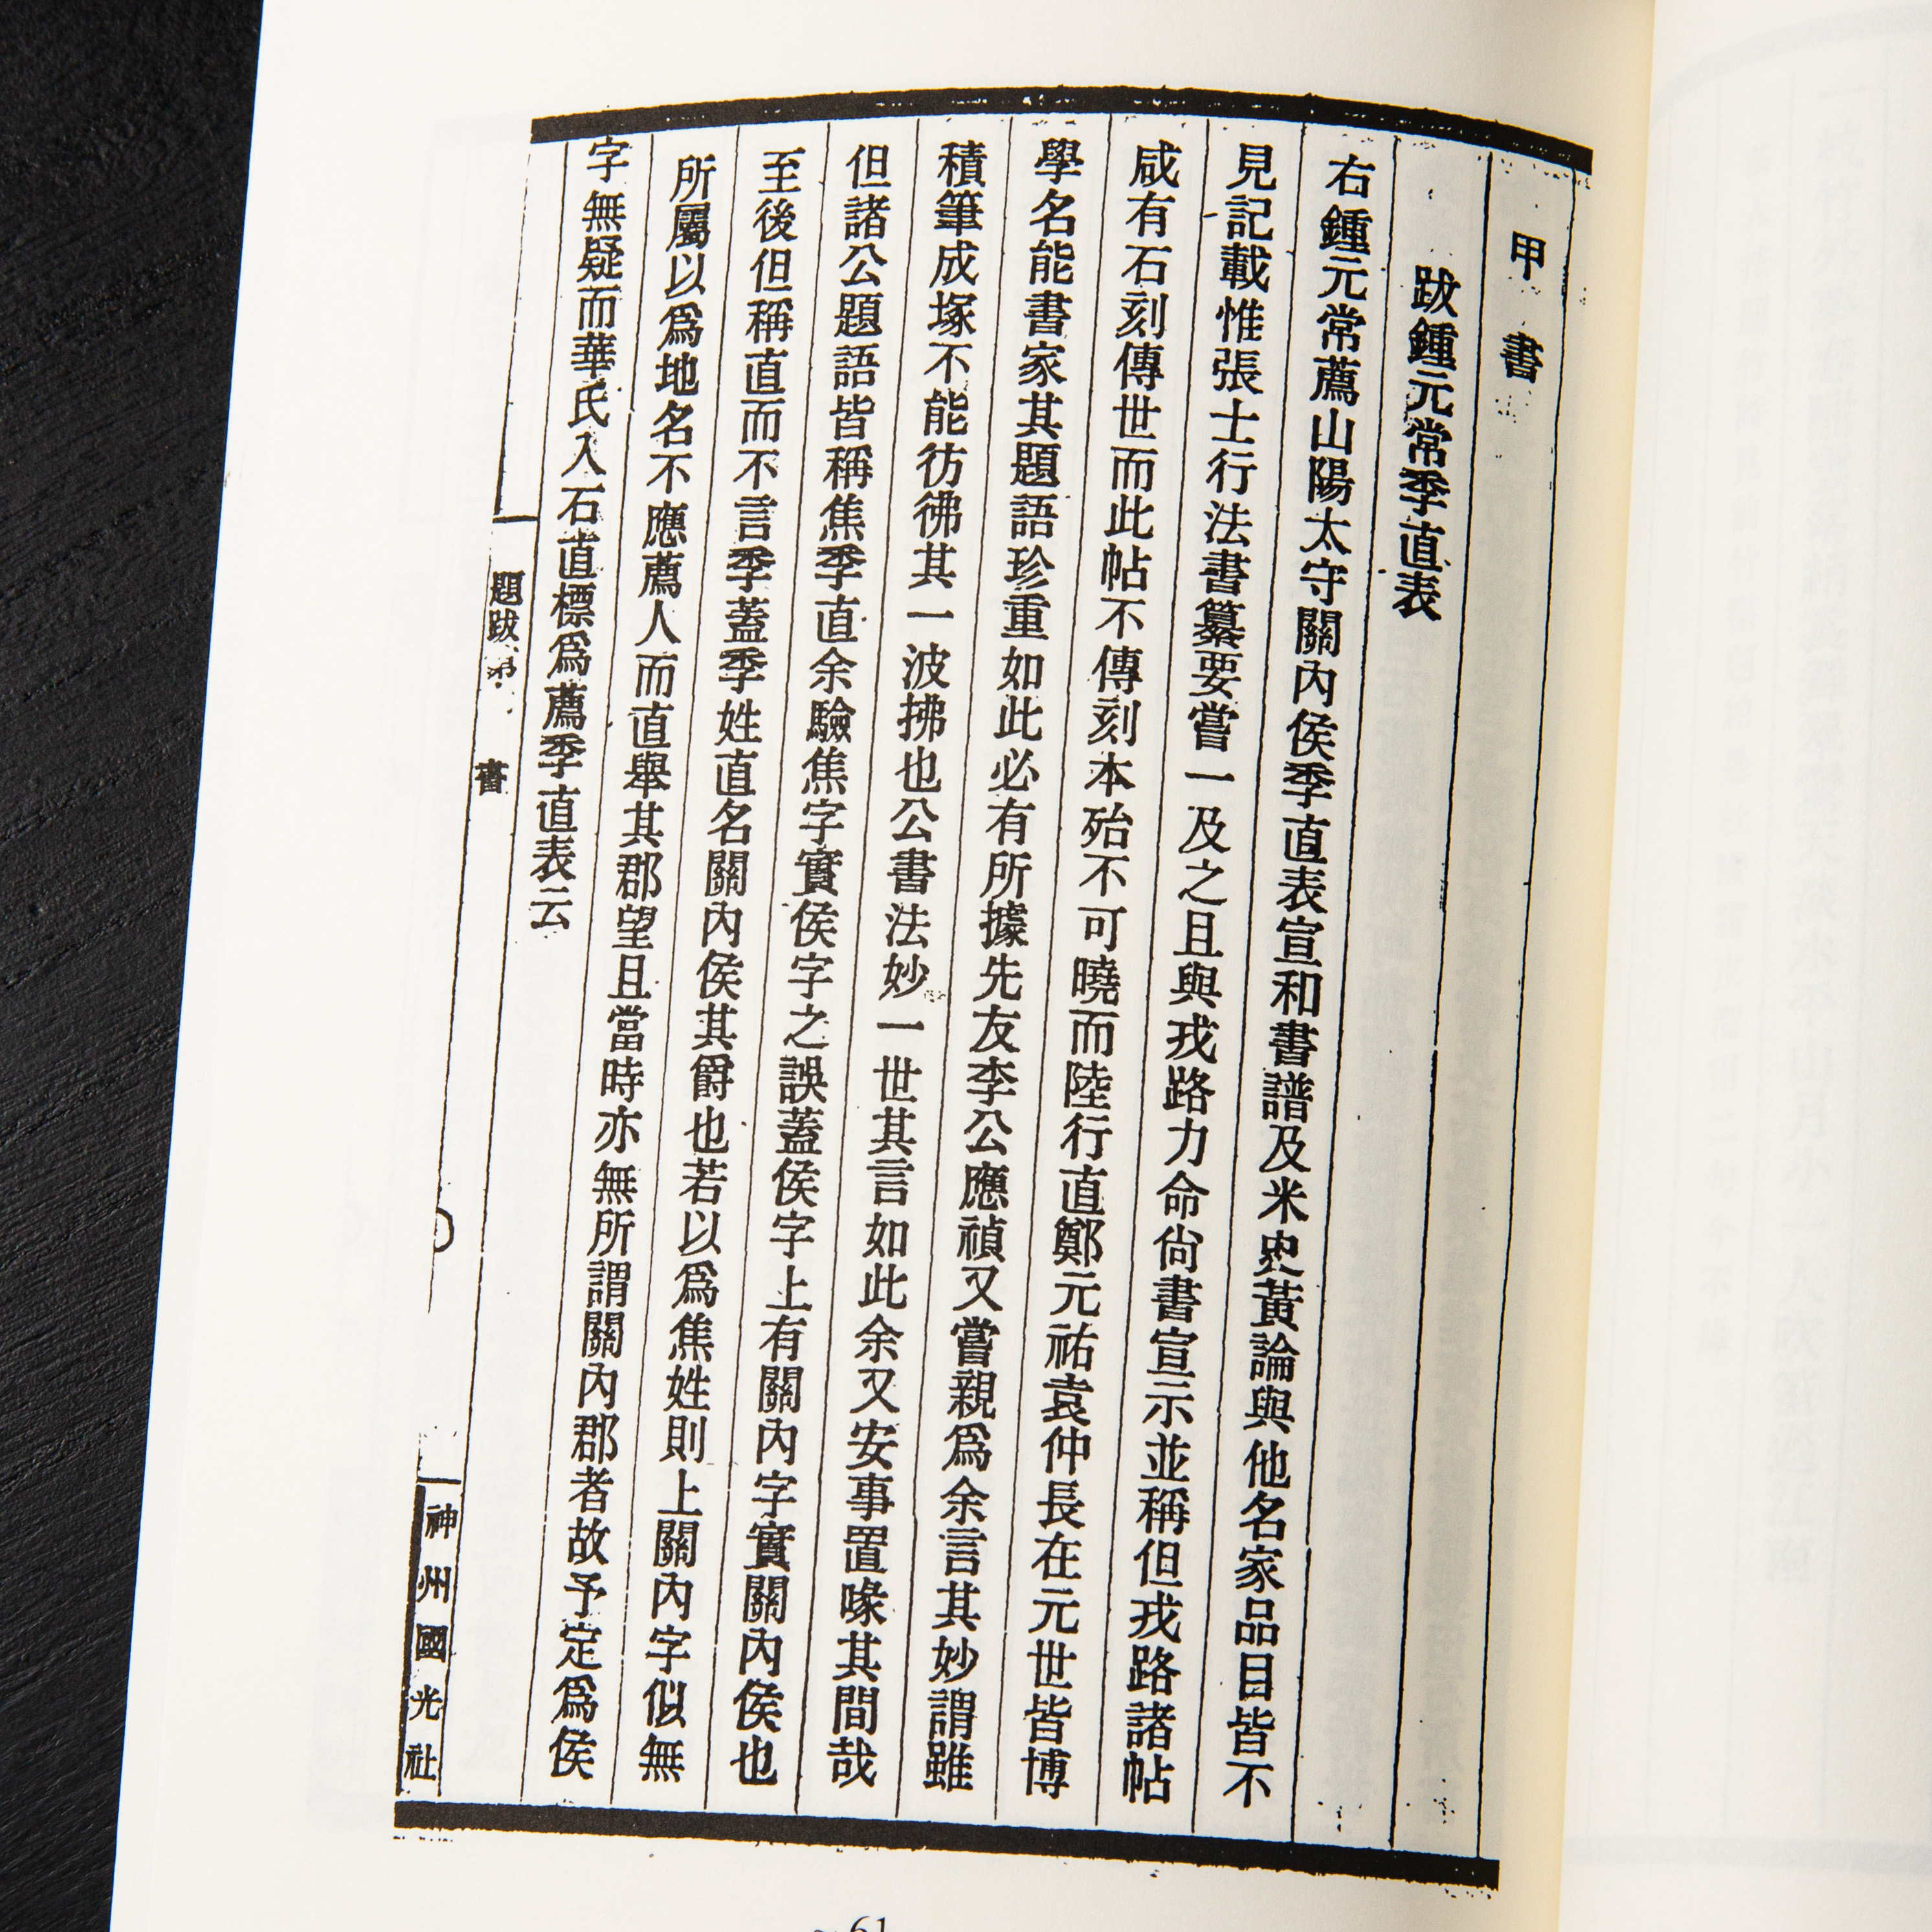 甲 書
跋鍾元常季直表
右鍾元常薦山陽太守關內侯季直表宣和書譜及米史黃論與他名家品目皆不
見記載惟張士行法書纂要嘗一及之且與戎路力命尙書宣示並稱但戎路諸帖
咸有石刻傳世而此帖不傳刻本殆不可曉而陸行直鄭元祐袁仲長在元世皆博
學名能書家其題語珍重如此必有所據先友李公應禎又嘗親爲余言其妙謂雖
積筆成塚不能彷彿其一波拂也公書法妙一世其言如此余又安事置喙其間哉
但諸公題語皆稱焦季直余驗焦字實侯字之誤蓋侯字上有關內字實關內侯也
至後但稱直而不言季蓋季姓直名關內侯其爵也若以爲焦姓則上關內字似無
所屬以爲地名不應薦人而直舉其郡望且當時亦無所謂關內郡者故予定爲侯
字無疑而華氏入石直標爲薦季直表云
題跋 書
神州國光社
61